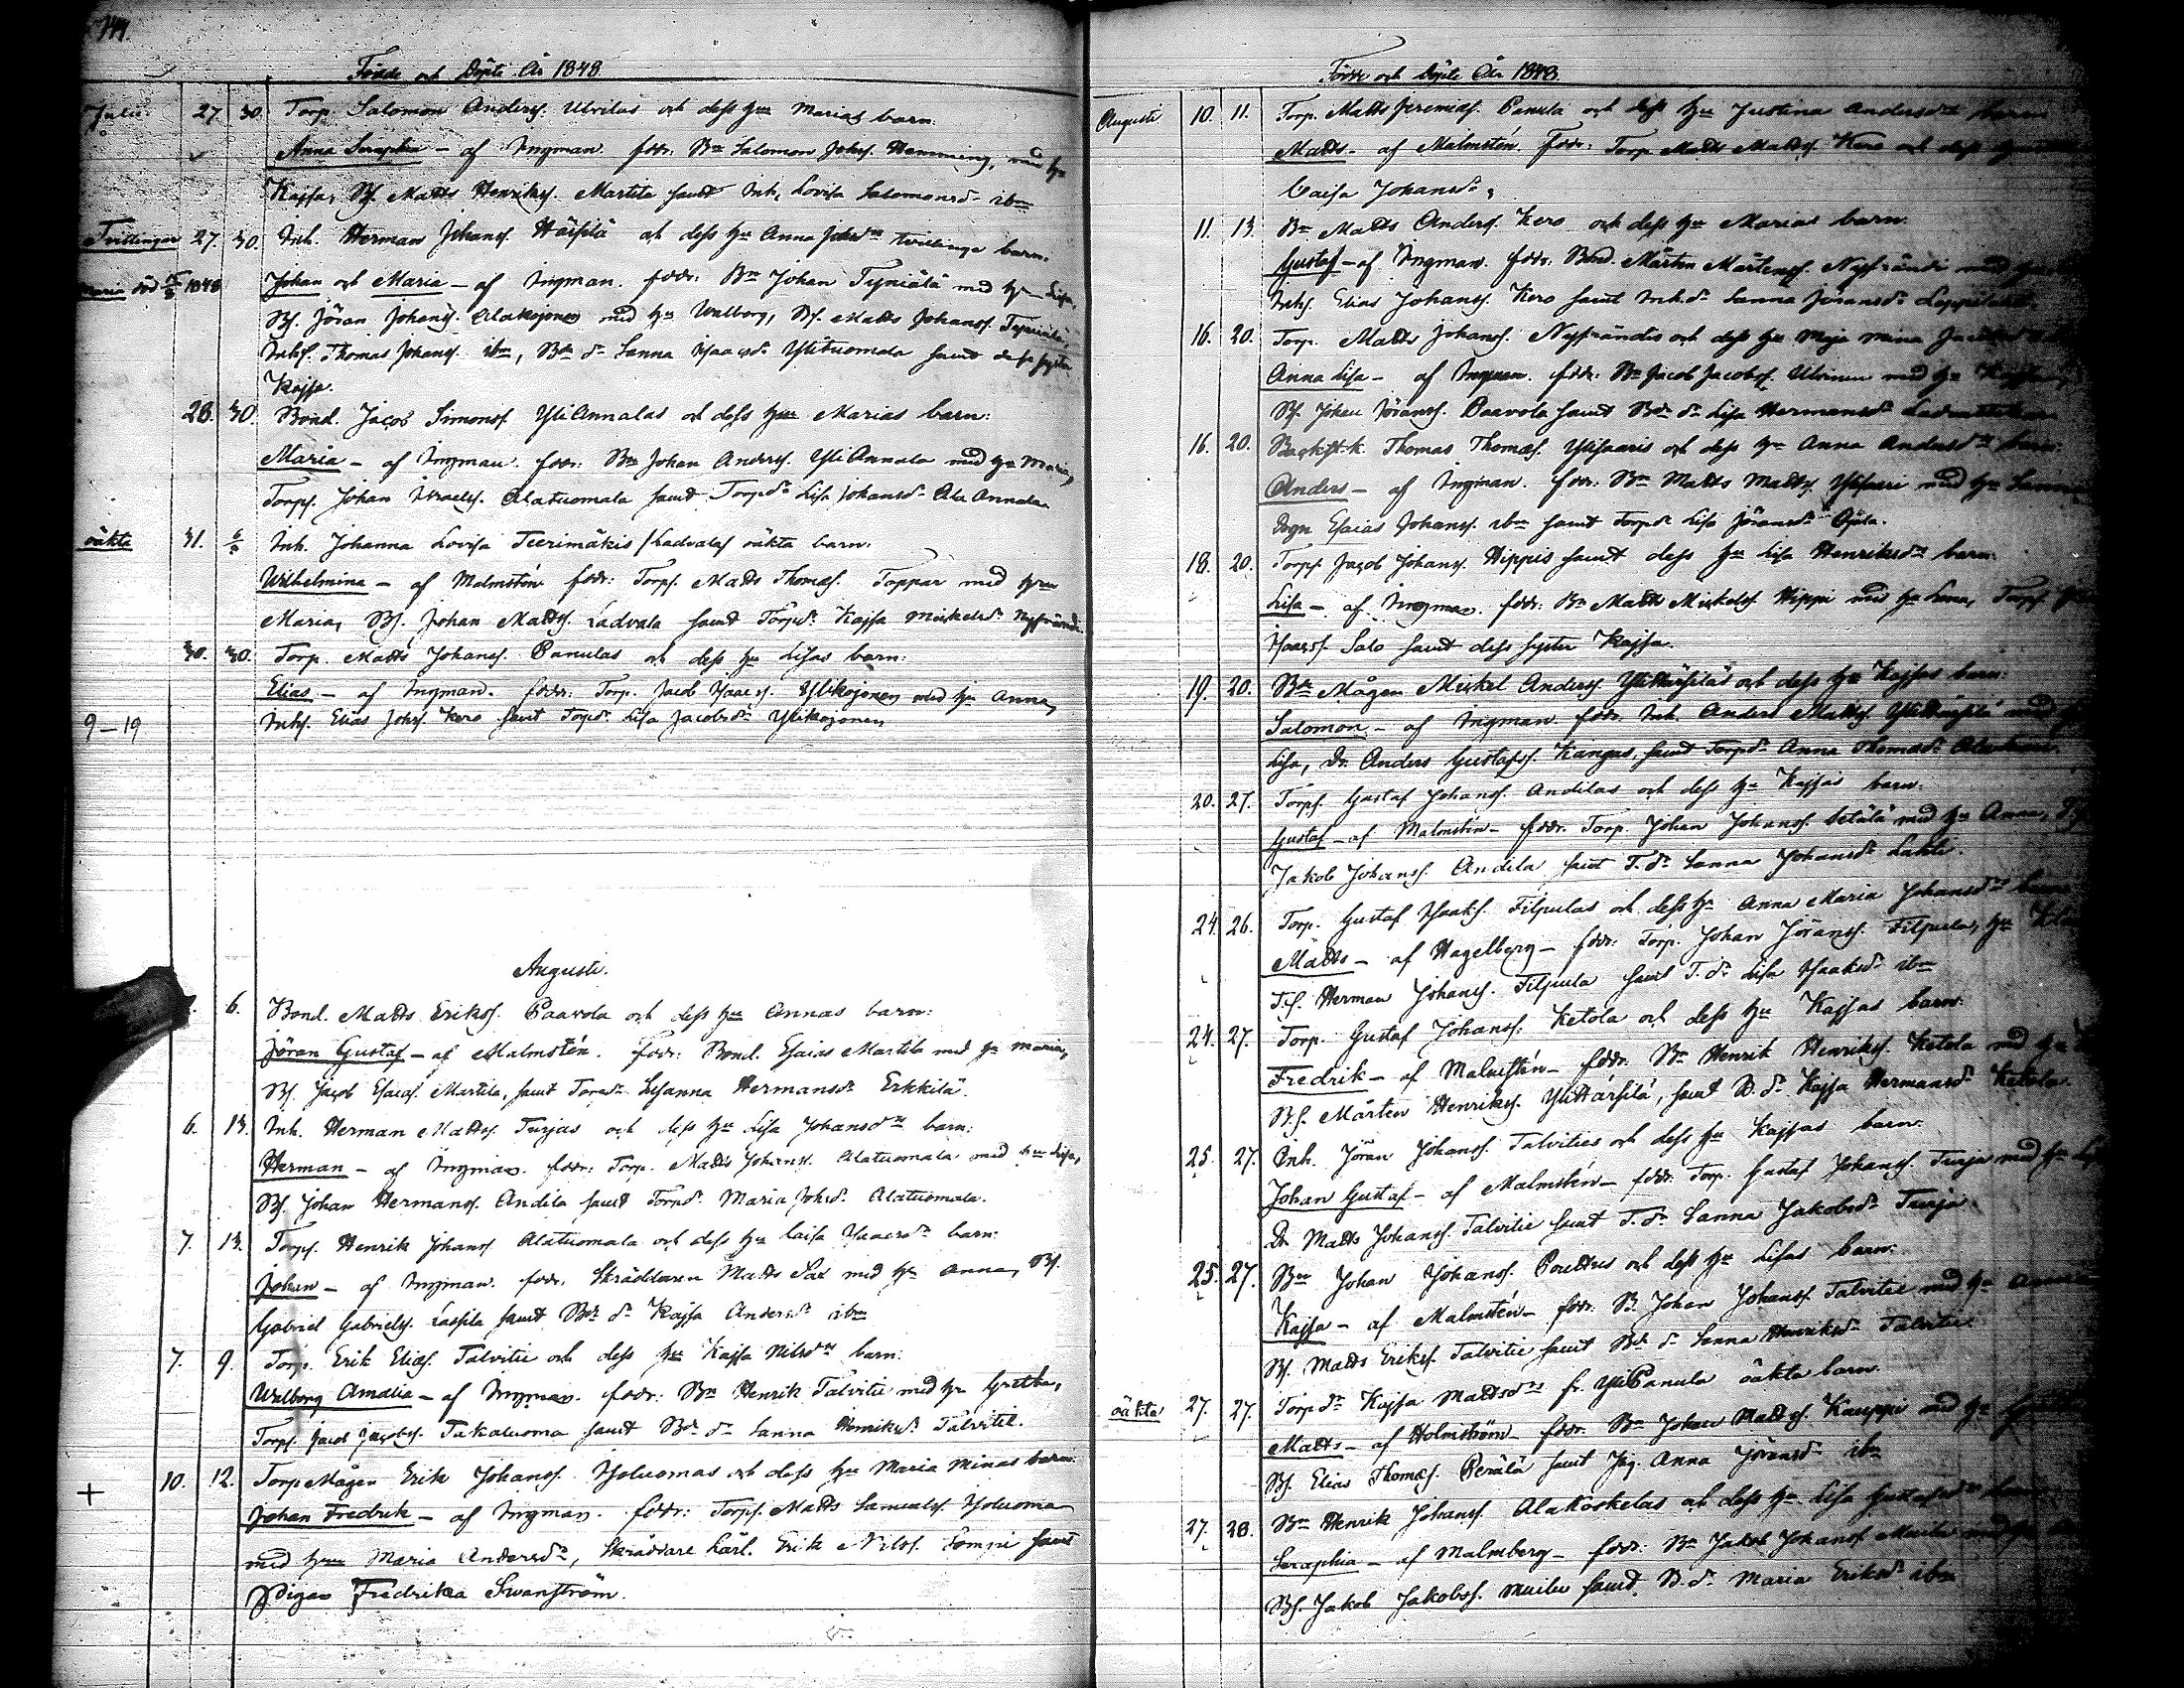 Födde och Döpte År 1848.
Julii 27. 30. Torp. Salomon Anderss. Ulvilas och dess hu Marias barn:
Anna Seraphia – af Ingman. fadr: Bn Salomon Johss. Hemming, med hu
Kajsa, Bs. Matts Henrikss. Martila samt Inh. Lovisa Salomonsd. ibm
Tvillingar 27. 30. Inh. Herman Johanss. Härsilä och dess hu Anna Johsdrs tvillinge barn:
Maria död 1848 Johan och Maria – af Ingman. fadr: Bn Johan Tyniälä med hu Lisa,
Bs. Jöran Johanss. Alakojonen med hu Walborg, Bs. Matts Johanss. Tyniälä,
Inhs. Thomas Johanss. ibm, Bde dr Sanna Isaacsdr Ylituomala samt dess syster
Kajsa.
28. 30. Bond. Jacob Simonss. YliAnnalas och dess hus Marias barn:
Maria – af Ingman. fadr: Bn Johan Anderss. YliAnnala med hu Maria,
Torps. Johan Israelss. Alatuomala samt Torpdr Lisa Johansdr AlaAnnala
oäkta 31. 6/8 Inh. Johanna Lovisa Teerimäkis /Ladvalas oäkta barn:
Wilhelmina – af Malmstén fadr: Torps. Matts Thomæs. Toppar med hun
Maria, Bs. Johan Mattss. Ladvala samt Torpdr Kajsa Mickelsdr Nyfrändi.
30. 30. Torp. Matts Johanss. Panulas och dess hu Lisas barn:
Elias – af Ingman. fadr: Torp. Jacob Isaacss. Ylikojonen med hu Anna,
Inhs. Elias Johss. Kero samt Torpdr Lisa Jacobsdr Ylikojonen
9–19
Augusti.
6. Bond. Matts Erikss. Paavola och dess hus Annas barn:
Jöran Gustaf – af Malmstén. fadr: Bond. Esaias Martila med hu Maria,
Bs. Jacob Esaiæs. Martila, samt Torpdr Susanna Hermansdr Erkkilä.
6. 13. Inh. Herman Mattss. Turjas och dess hu Lisa Johansdrs barn:
Herman – af Ingman. fadr: Torp. Matts Johanss. Alatuomala med hu Lisa,
Bs. Johan Hermanss. Andila samt Torpdr Maria Johsdr Alatuomala.
7. 13. Torps. Henrik Johanss. Alatuomala och dess hu Caisa Isaacsdrs barn:
Johan – af Ingman. fadr. Skräddaren Matts Sax med hu Anna, Bs.
Gabriel Gabrielss. Lassila samt Bde dr Kajsa Andersdr ibm
7. 9. Torp. Erik Eliæs. Talvitie och dess hu Kajsa Nilsdrs barn:
Walborg Amalia – af Ingman. fadr: Bn Henrik Talvitie med hu Gretha,
Torps. Jacob Jacobss. Takaluoma samt Bde dr Sanna Henriksdr Talvitie.
+ 10. 12. TorpMågen Erik Johanss. Isoluomas och dess hu Maria Minas barn:
Johan Fredrik – af Ingman. fadr: Torps. Matts Samuelss. Isoluoma
med hun Maria Andersdr, Skräddare Lärl. Erik Nilss. Lompi samt
Pigan Fredrika Swanström.
Födde och Döpte År 1848.
Augusti 10. 11. Torp. Matts Jeremiæs. Panula och dess hu Justina Andersdrs barn
Matts – af Malmstén. fadr: Torp Matts Mattss. Kero och dess hu
Caisa Johansdr,
11. 13. Bn Matts Anderss. Kero och dess hu Marias barn:
Gustaf – af Ingman. fadr: Bond. Mårten Mårtenss. Nyfrändi med hu
Inhs. Elias Johanss. Kero samt Inh.dr Sanna Jöransdr
16. 20. Torp. Matts Johanss. Nyfrändis och dess hu Maja Mina
Anna Lisa – af Ingman. fadr: Bn Jacob Jacobss. Ulvinen med hu Kajsa,
Bs. Johan Jöranss. Paavola samt Bde dr Lisa Hermansdr
16. 20. Backst.k. Thomas Thomæs. Ylisaaris och dess hu Anna Andersdrs barn:
Anders – af Ingman. fadr: Bn Matts Mattss. Ylisaari med hu
Drgn Esaias Johanss. ibm samt Torpdr Lisa Jöransdr Ojala.
18. 20. Torps Jacob Johanss. Hippis samt dess hu Lisa Henriksdrs barn:
Lisa – af Ingman. fadr: Bn Matts Mickelss. Hippi med hu Lena, Torps
Isaacss. Salo samt dess syster Kajsa.
19. 20. Bde Mågen Mickel Anderss. YliHärsiläs och dess hu Kajsas barn:
Salomon – af Ingman. fadr. Inh. Anders Mattss. YliHärsilä med hu
Lisa, Dr. Anders Gustafss. Kangas, samt Torpdr Anna Thomædr
20. 27. Torps. Gustaf Johanss. Andilas och dess hu Kajsas barn:
Gustaf – af Malmstén – fadr. Torp. Johan Johanss. Wetälä med hu Anna,
Jakob Johanss. Andila samt T.dr Sanna Johansdr Lahti.
24. 26. Torp. Gustaf Isaaks. Filpulas och dess hu Anna Maria Johansdrs barn
Matts – af Hagelberg – fadr: Torp. Johan Jöranss. Filpula, hu
T.s. Herman Johanss. Filpula samt T.dr Lisa Isaaksdr ibm
24. 27. Torp. Gustaf Johanss. Ketola och dess hu Kajsas barn:
Fredrik – af Malmstén – fadr. Bn Henrik Henrikss. Ketola med hu
B.s. Mårten Henrikss. YliHärsilä, samt B.dr Kajsa Hermansdr Ketola.
25. 27. Inh. Jöran Johanss. Talvities och dess hu Kajsas barn:
Johan Gustaf – af Malmstén – fadr. Torp. Gustaf Johanss. Turja med hu
Dr Matts Johanss. Talvitie samt T.dr Sanna Jakobsdr Turja
25. 27. Bn Johan Johanss. Pouttus och dess hu Lisas barn:
Kajsa – af Malmstén – fadr. B. Johan Johanss. Talvitie med hu Anna
Bs. Matts Erikss. Talvitie samt Bde dr Sanna Henriksdr Talvitie
oäkta 27. 27. Torpdr Kajsa Mattsdrs fr. YliPanula oäkta barn.
Matts – af Holmström – fadr. Bn Johan Mattss. Kauppi med hu
Bs. Elias Thomæs. Perälä samt Pig. Anna Jöransdr ibm
27. 28. Bn Henrik Johanss. AlaKoskelas och dess hu Lisa Gustafsdrs barn
Seraphia – af Malmberg – fadr: Bn Jakob Johanss. Muilu med hu
Bs. Jakob Jakobss. Muilu samt B.dr Maria Eriksdr ibm